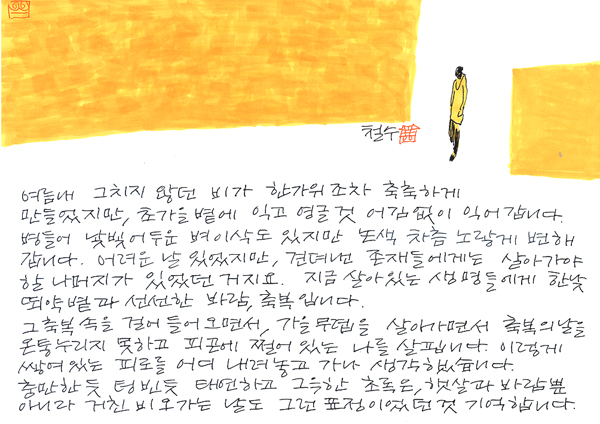 철수
여름내 그치지 않던 비가 한가위조차 축축하게
만들었지만, 초가을볕에 익고 영글 것 어김없이 익어갑니다.
병들어 낯빛 어두운 벼이삭도 있지만 논색 차츰 노랗게 변해
갑니다. 어려운 날 있었지만, 견뎌낸 존재들에게는 살아가야
할 나머지가 있었던 거지요. 지금 살아있는 생명들에게 한낮
뙤약볕과 선선한 바람, 축복입니다.
그 축복 속을 걸어 들어오면서, 가을 무렵을 살아가면서 축복의 날을
온통 누리지 못하고 피로에 쩔어 있는 나를 살핍니다. 이렇게
쌓여 있는 피로를 어디 내려놓고 가나 생각했습니다.
충만한 듯 텅빈 듯 태연하고 그득한 초록은, 햇살과 바람뿐
아니라 거친 비 오가는 날도 그런 표정이었던 것 기억합니다.